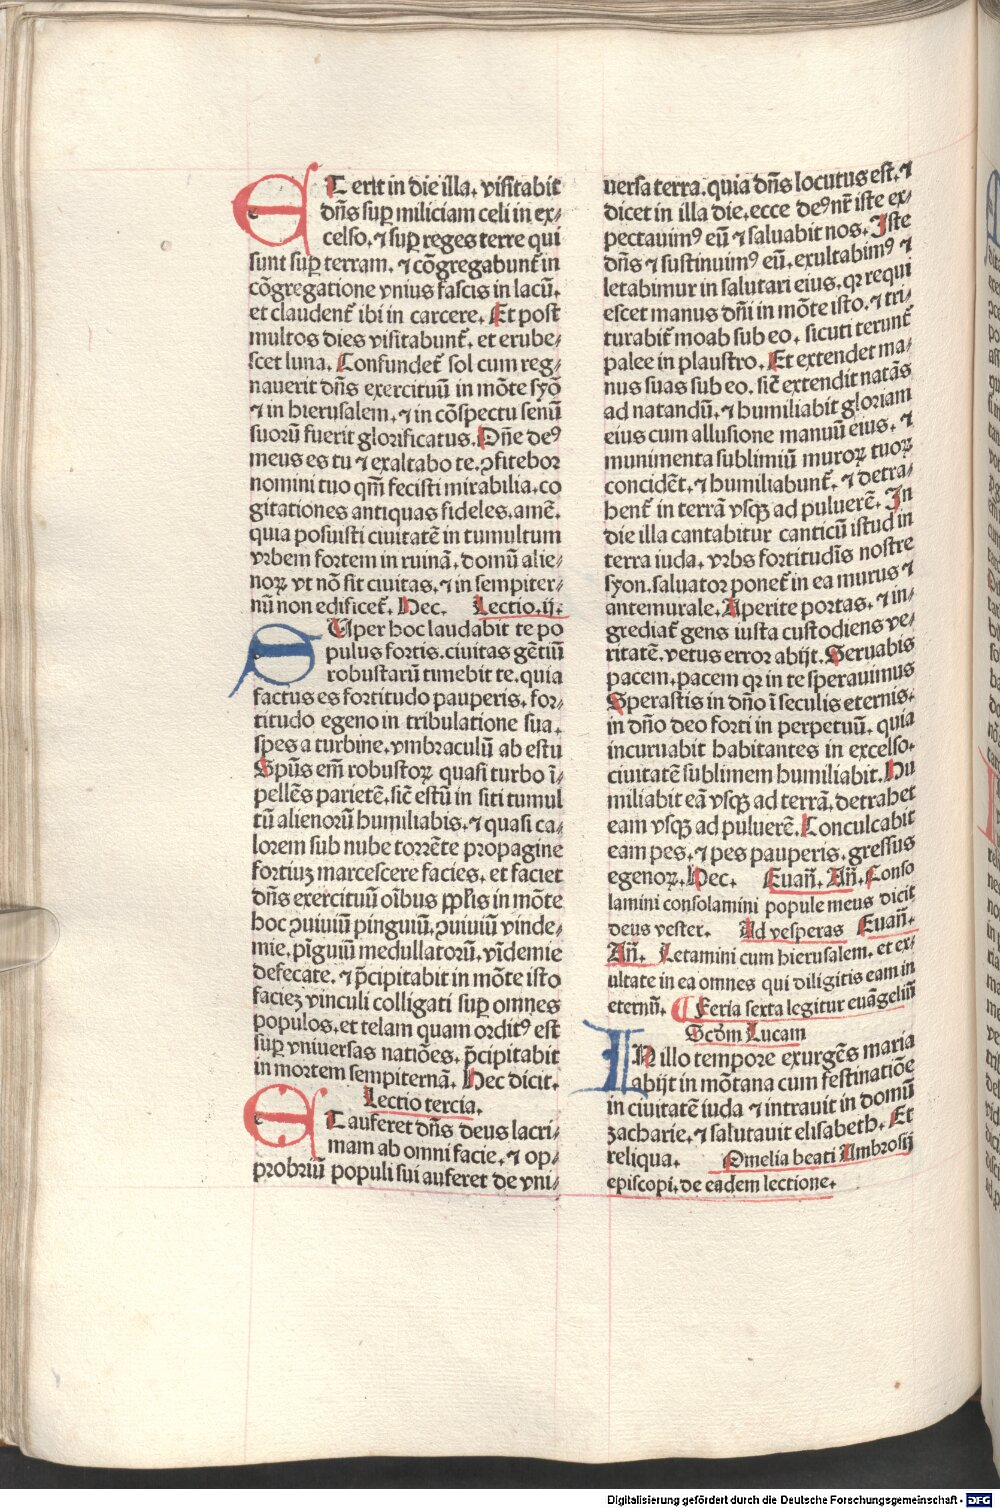 ET erit in die illa. visitabit
dn̄s sup̱ miliciam celi in ex⸗
celso. ⁊ sup̱ reges terre qui
sunt sup̱ terram. ⁊ cōgregabunt᷑ in
cōgregatione vnius fascis in lacū.
et claudent᷑ ibi in carcere. Et post
multos dies visitabunt᷑. et erube⸗
scet luna. Confundet᷑ sol cum reg⸗
nauerit dn̄s exercituū in mōte syō
⁊ in hierusalem. ⁊ in cōspectu senū
suorū fuerit glorificatus. Dn̄e deꝰ
meus es tu ⁊ exaltabo te. ꝯfitebor
nomini tuo qm̄ fecisti mirabilia. co
gitationes antiquas fideles. amē.
quia posuisti ciuitatē in tumultum
vrbem fortem in ruinā. domū alie⸗
noꝝ vt nō sit ciuitas. ⁊ in sempiter⸗
nū non edificet᷑. Hec. Lectio. ij.
SUper hoc laudabit te po
pulus fortis. ciuitas gētiū
robustarū timebit te. quia
factus es fortitudo pauperis. for⸗
titudo egeno in tribulatione sua.
spes a turbine. vmbraculū ab estu
Spūs em̄ robustoꝝ quasi turbo ī⸗
pellēs parietē. sic̄ estū in siti tumul
tū alienorū humiliabis. ⁊ quasi ca⸗
lorem sub nube torrēte propagine
fortiuʒ marcescere facies. et faciet
dn̄s exercituū oībus pp̄lis in mōte
hoc ꝯuiuiū pinguiū. ꝯuiuiū vinde⸗
mie. pīguiū medullatorū. vīdemie
defecate. ⁊ p̄cipitabit in mōte isto
facieʒ vinculi colligati sup̱ omnes
populos. et telam quam orditꝰ est
sup̱ vniuersas natiōes. p̄cipitabit
in mortem sempiternā. Hec dicit.
Lectio tercia.
ET auferet dn̄s deus lacri⸗
mam ab omni facie. ⁊ op⸗
probriū populi sui auferet de vni⸗
uersa terra. quia dn̄s locutus est. ⁊
dicet in illa die. ecce deꝰ nr̄ iste ex⸗
pectauimꝰ eū ⁊ saluabit nos. Iste
dn̄s ⁊ sustinuimꝰ eū. exultabimꝰ ⁊
letabimur in salutari eius. qꝛ requi
escet manus dn̄i in mōte isto. ⁊ tri⸗
turabit᷑ moab sub eo. sicuti terunt᷑
palee in plaustro. Et extendet ma⸗
nus suas sub eo. sic̄ extendit natās
ad natandū. ⁊ humiliabit gloriam
eius cum allusione manuū eius. ⁊
munimenta sublimiū muroꝝ tuoꝝ
concidēt. ⁊ humiliabunt᷑. ⁊ detra⸗
hent᷑ in terrā vsqꝫ ad puluerē. In
die illa cantabitur canticū istud in
terra iuda. vrbs fortitudīs nostre
syon. saluator ponet᷑ in ea murus ⁊
antemurale. Aperite portas. ⁊ in⸗
grediat᷑ gens iusta custodiens ve⸗
ritatē. vetus error abijt. Seruabis
pacem. pacem qꝛ in te sperauimus
Sperastis in dn̄o ī seculis eternis.
in dn̄o deo forti in perpetuū. quia
incuruabit habitantes in excelso.
ciuitatē sublimem humiliabit. Hu
miliabit eā vsqꝫ ad terrā. detrahet
eam vsqꝫ ad puluerē. Conculcabit
eam pes. ⁊ pes pauperis. gressus
egenoꝝ. Hec. Euan̄. An̄. Conso
lamini consolamini popule meus dicit
deus vester. Ad vesperas Euan̄.
An̄. Letamini cum hierusalem. et ex⸗
ultate in ea omnes qui diligitis eam in
eternū. ¶ Feria sexta legitur euāgeliū
Scd̄m Lucam
IN illo tempore exurgēs maria
abijt in mōtana cum festinatiōe
in ciuitatē iuda ⁊ intrauit in domū
zacharie. ⁊ salutauit elisabeth. Et
reliqua. Omelia beati Ambrosij
episcopi. de eadem lectione.
Digitalisierung gefördert durch die Deutsche Forschungsgemeinschaft - DFG